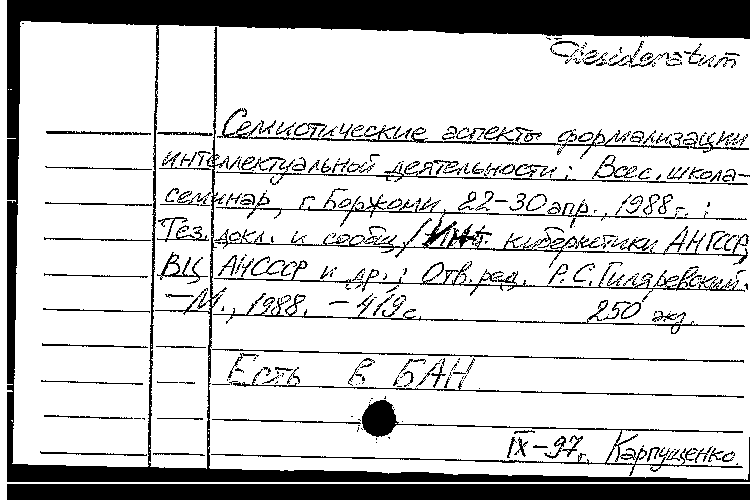 Desideratum
Семиотические аспекты формализации
интеллектуальной деятельности: Всес. школа-
семинар, г. Боржоми, 22-30 апр., 1988 г.:
Тез. докл. и сообщ / Инт кибернетики АНГССР,
ВЦ АНСССР и др.; Отв. ред. Р.С. Гиляревский.
-М., 1988. - 419 с. 250 экз.
Есть в БАН
IX-97г. Карпущенко.